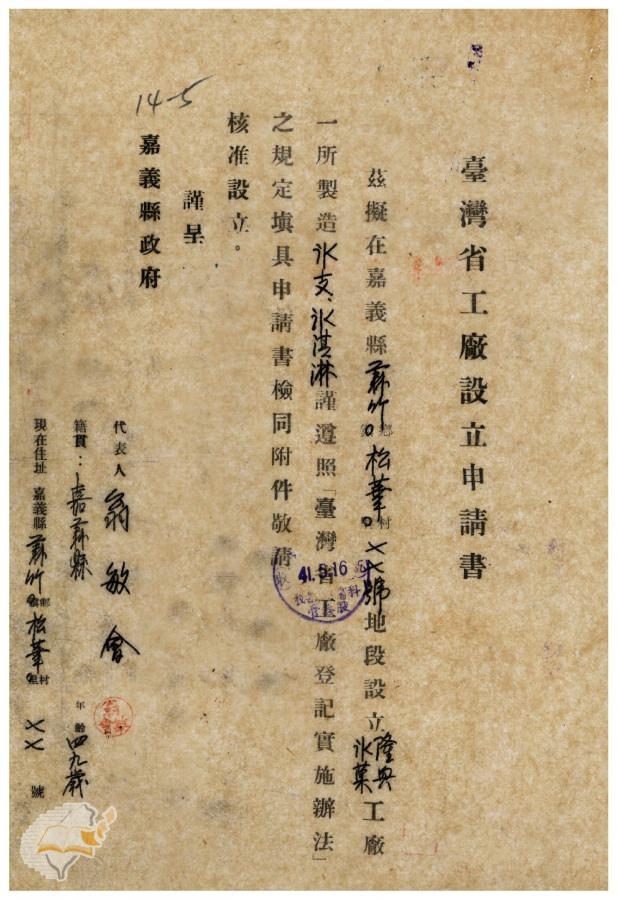 臺灣省工廠設立申請書
茲擬在嘉義縣義竹鄉松華村××號地段設立隆興冰菓工廠
一所製造冰支、冰淇淋謹遵照「臺灣省工廠登記實施辦法」
之規定填具申請書檢同附件敬請
核准設立。
謹呈
嘉義縣政府
14-5
代表人 翁敏會
籍貫：嘉義縣 年齡 四九歲
現在住址 嘉義縣義竹鄉松華村 ×× 號
41.5.16